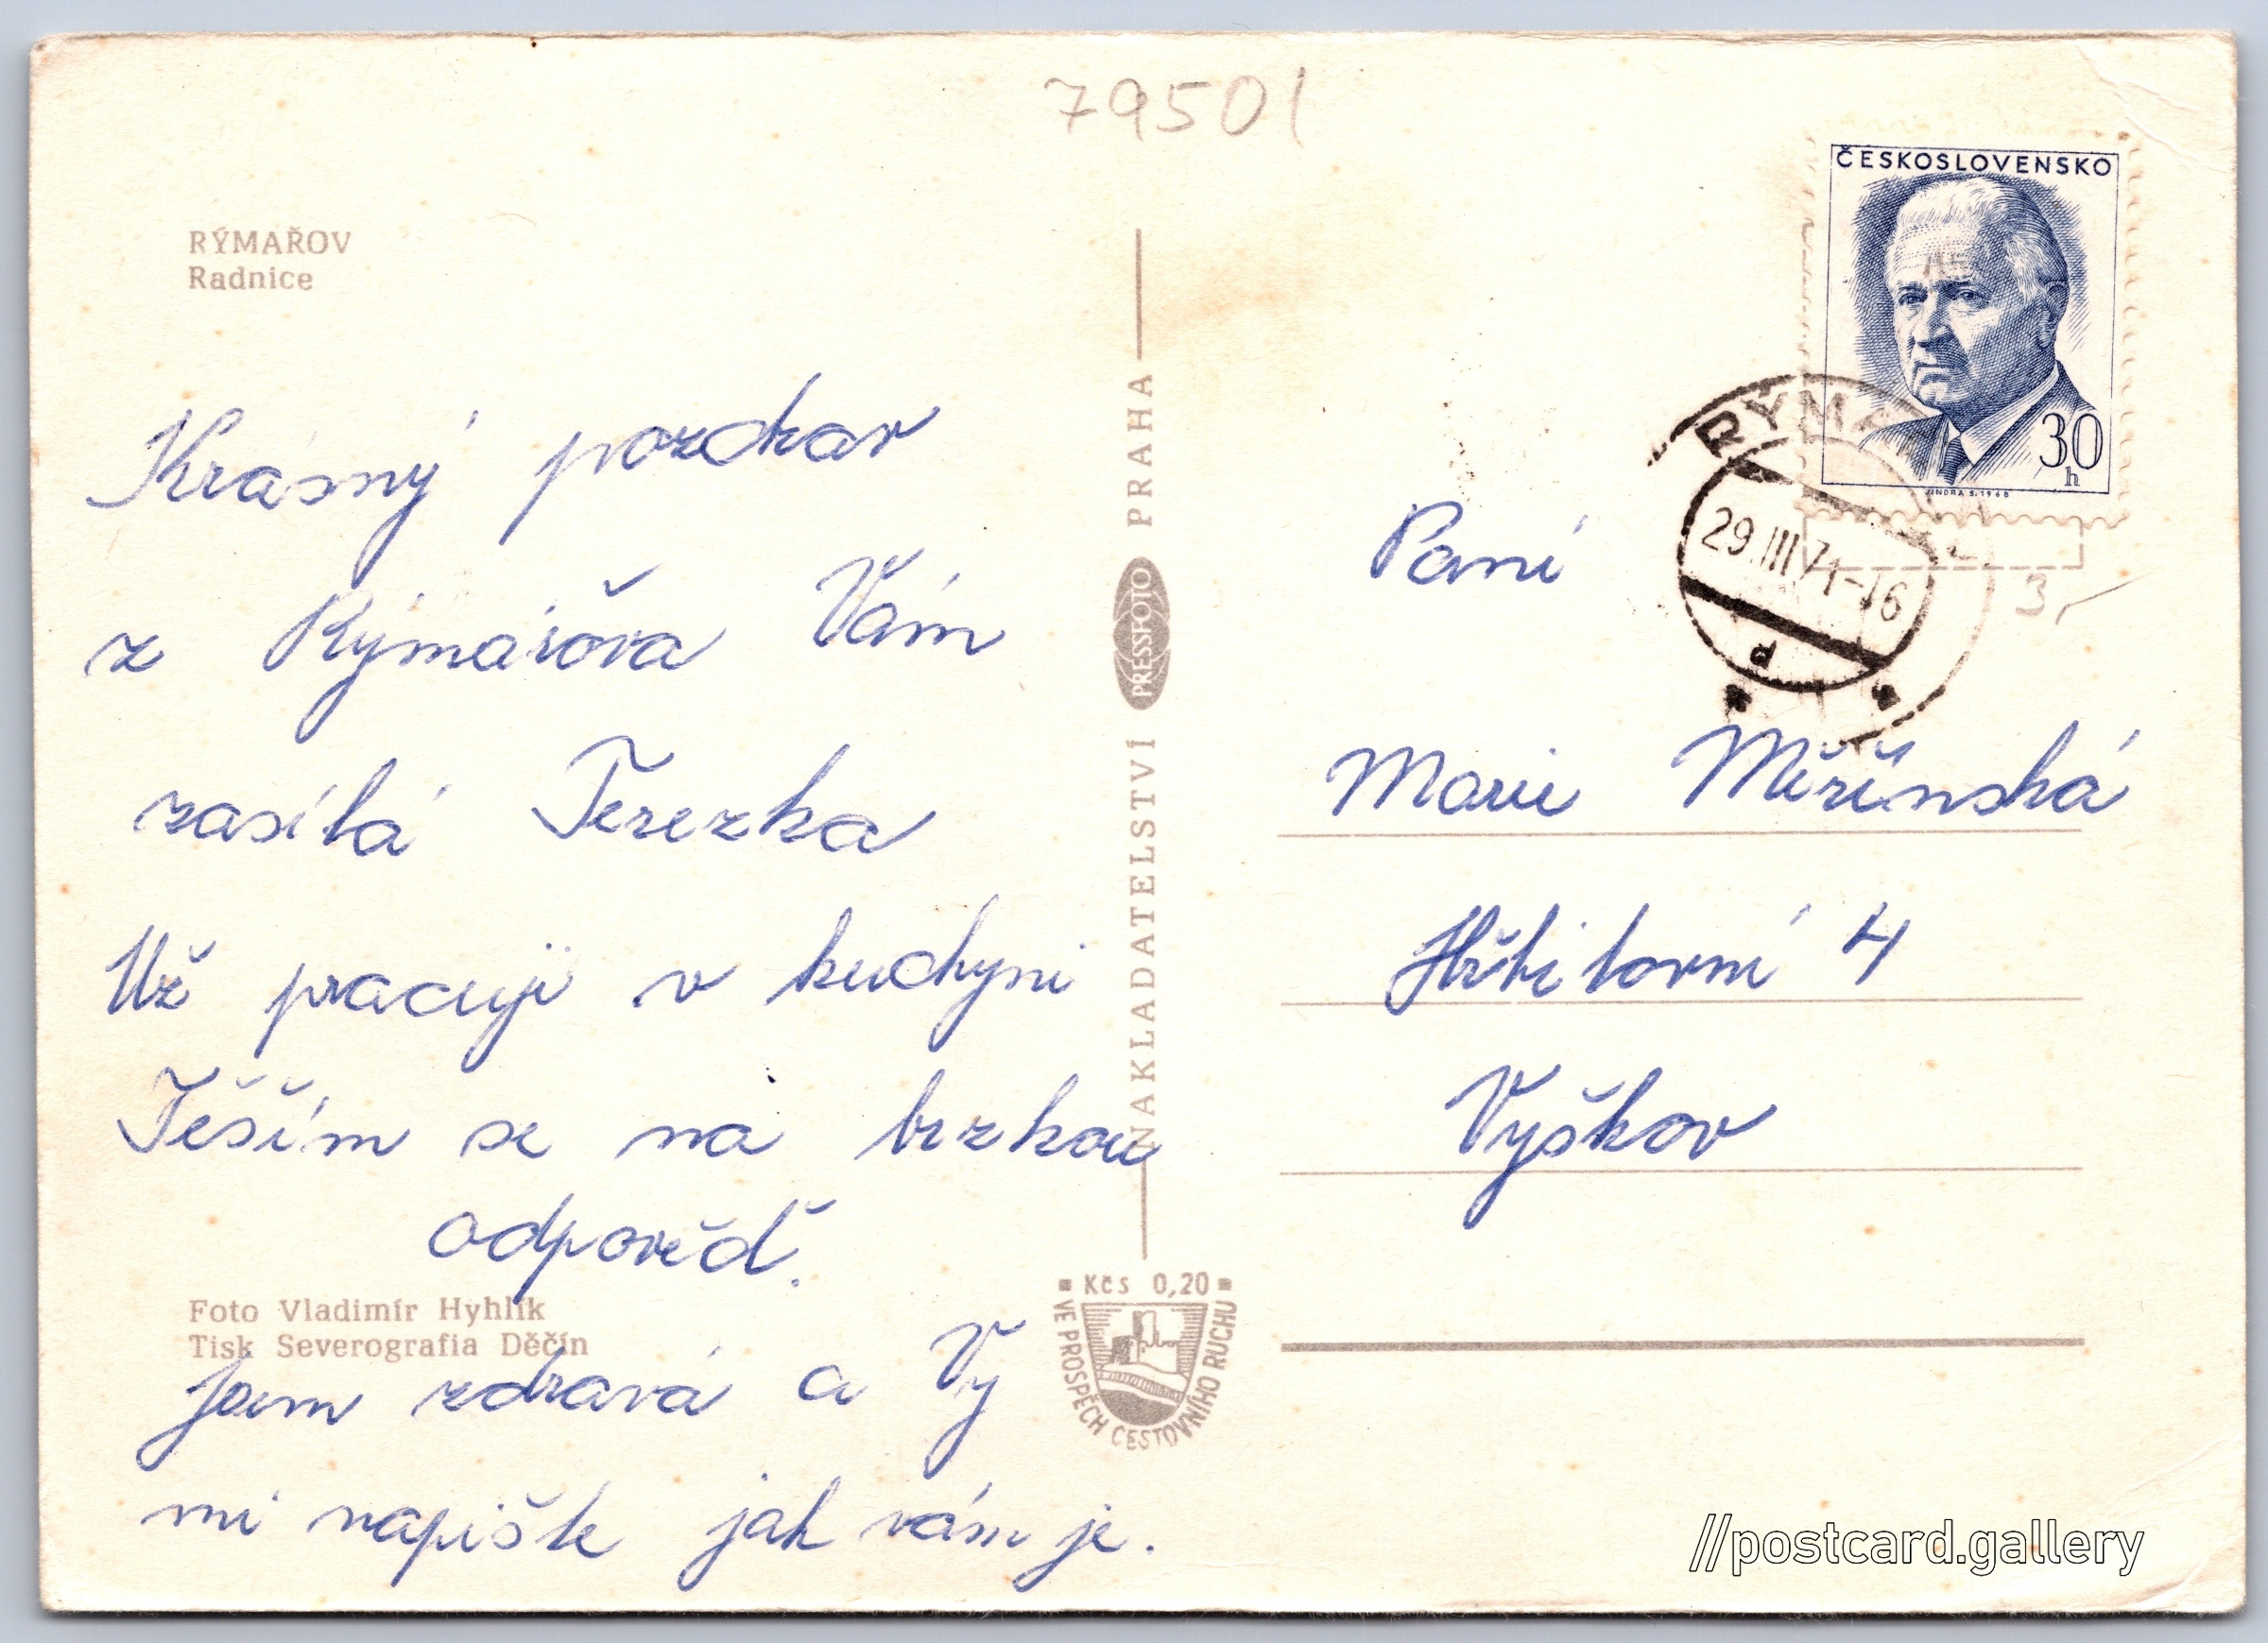 79501
RÝMAŘOV
Radnice
Krásný pozdrav
z Rýmářova Vám
zasílá Terezka
Už pracuji v kuchyni
Těším se na brzkou
odpověď.
Foto Vladimír Hyhlík
Tisk Severografia Děčín
Jsem zdravá a Vy
mi napište jak vám je.
NAKLADATELSTVÍ PRESSFOTO PRAHA
Kčs 0,20
VE PROSPĚCH CESTOVNÍHO RUCHU
ČESKOSLOVENSKO
30
h
JINDRA S. 1968
29.III.71-16
d
3,-
Paní
Marie Měřínská
4
Vyškov
//postcard.gallery